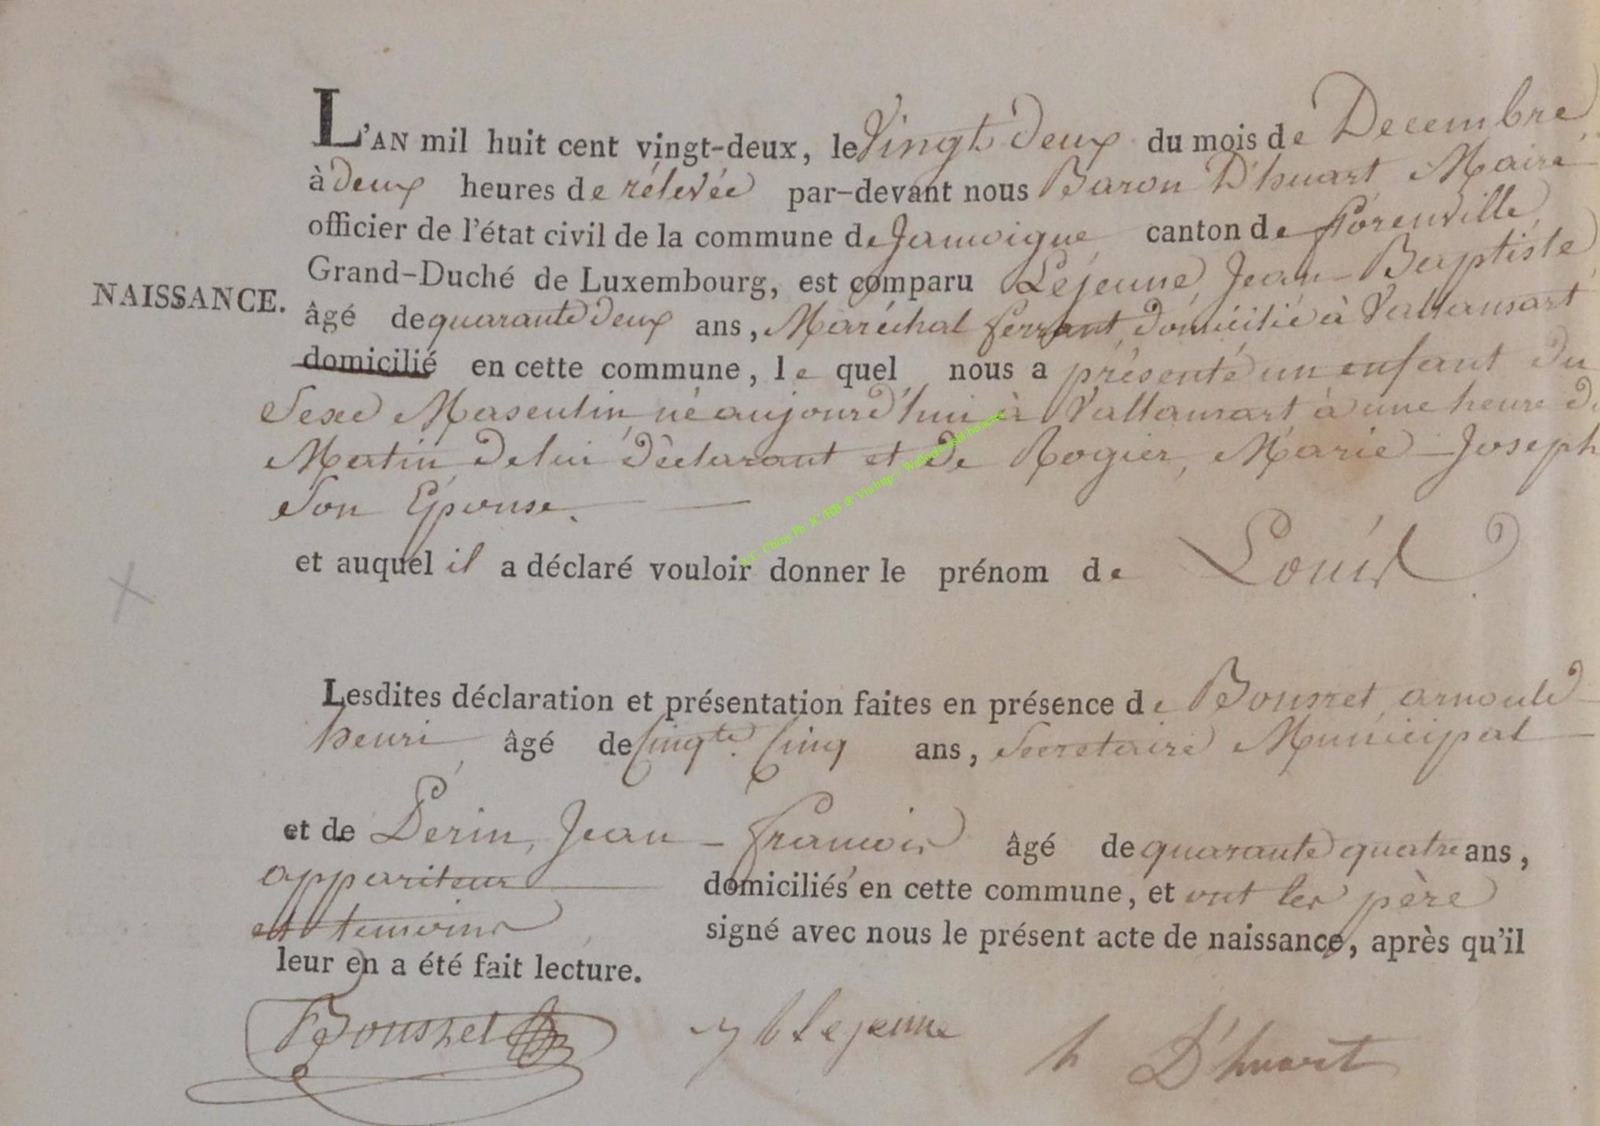 L'AN mil huit cent vingt-deux, le Vingt deux du mois de Decembre
à deux heures de rélevée par-devant nous Baron D'huart Maire
officier de l'état civil de la commune de Jamoigne canton de florenville
Grand-Duché de Luxembourg, est comparu Lejeune Jean Baptiste
NAISSANCE.
âgé de quarante deux ans, Maréchal ferrant domicilié à Vallansart
domicilié en cette commune, le quel nous a présenté un enfant du
Sexe Masculin né aujourd'hui à Vallansart à une heure du
Matin de lui déclarant et de Rogier, Marie Joseph
Son Epouse.
et auquel il a déclaré vouloir donner le prénom de Louis
Lesdites déclaration et présentation faites en présence de Bousret arnould
henri âgé de Cinqte. Cinq ans, Secretaire Municipal
et de Perin, Jean - francois âgé de quarante quatre ans,
appariteur domiciliés en cette commune, et ont les père
et temoins signé avec nous le présent acte de naissance, après qu'il
leur en a été fait lecture.
Bousret Lejeune h D'huart